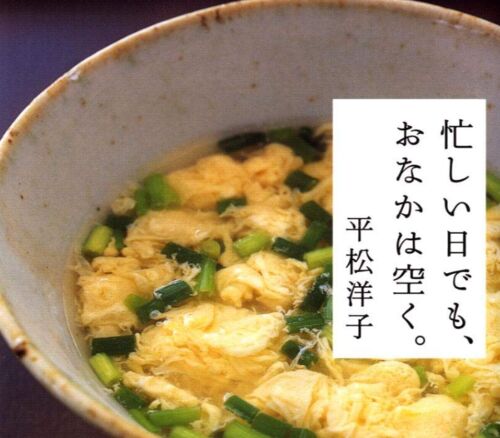 忙しい日でも、
おなかは空く。
平松洋子